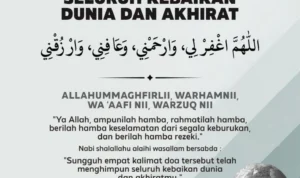 SELURUH KEBAIKAN
DUNIA DAN AKHIRAT
اللَّهُمَّ اغْفِرْ لِي، وَارْحَمْنِي، وَعَافِنِي، وَارْزُقْنِي
ALLAHUMMAGHFIRLII, WARHAMNII,
WA 'AAFI NII, WARZUQ NII
"Ya Allah, ampunilah hamba, rahmatilah hamba,
berilah hamba keselamatan dari segala keburukan,
dan berilah hamba rezeki."
Nabi shalallahu alaihi wasallam bersabda :
"Sungguh empat kalimat doa tersebut telah
menghimpun seluruh kebaikan dunia
dan akhiratmu."